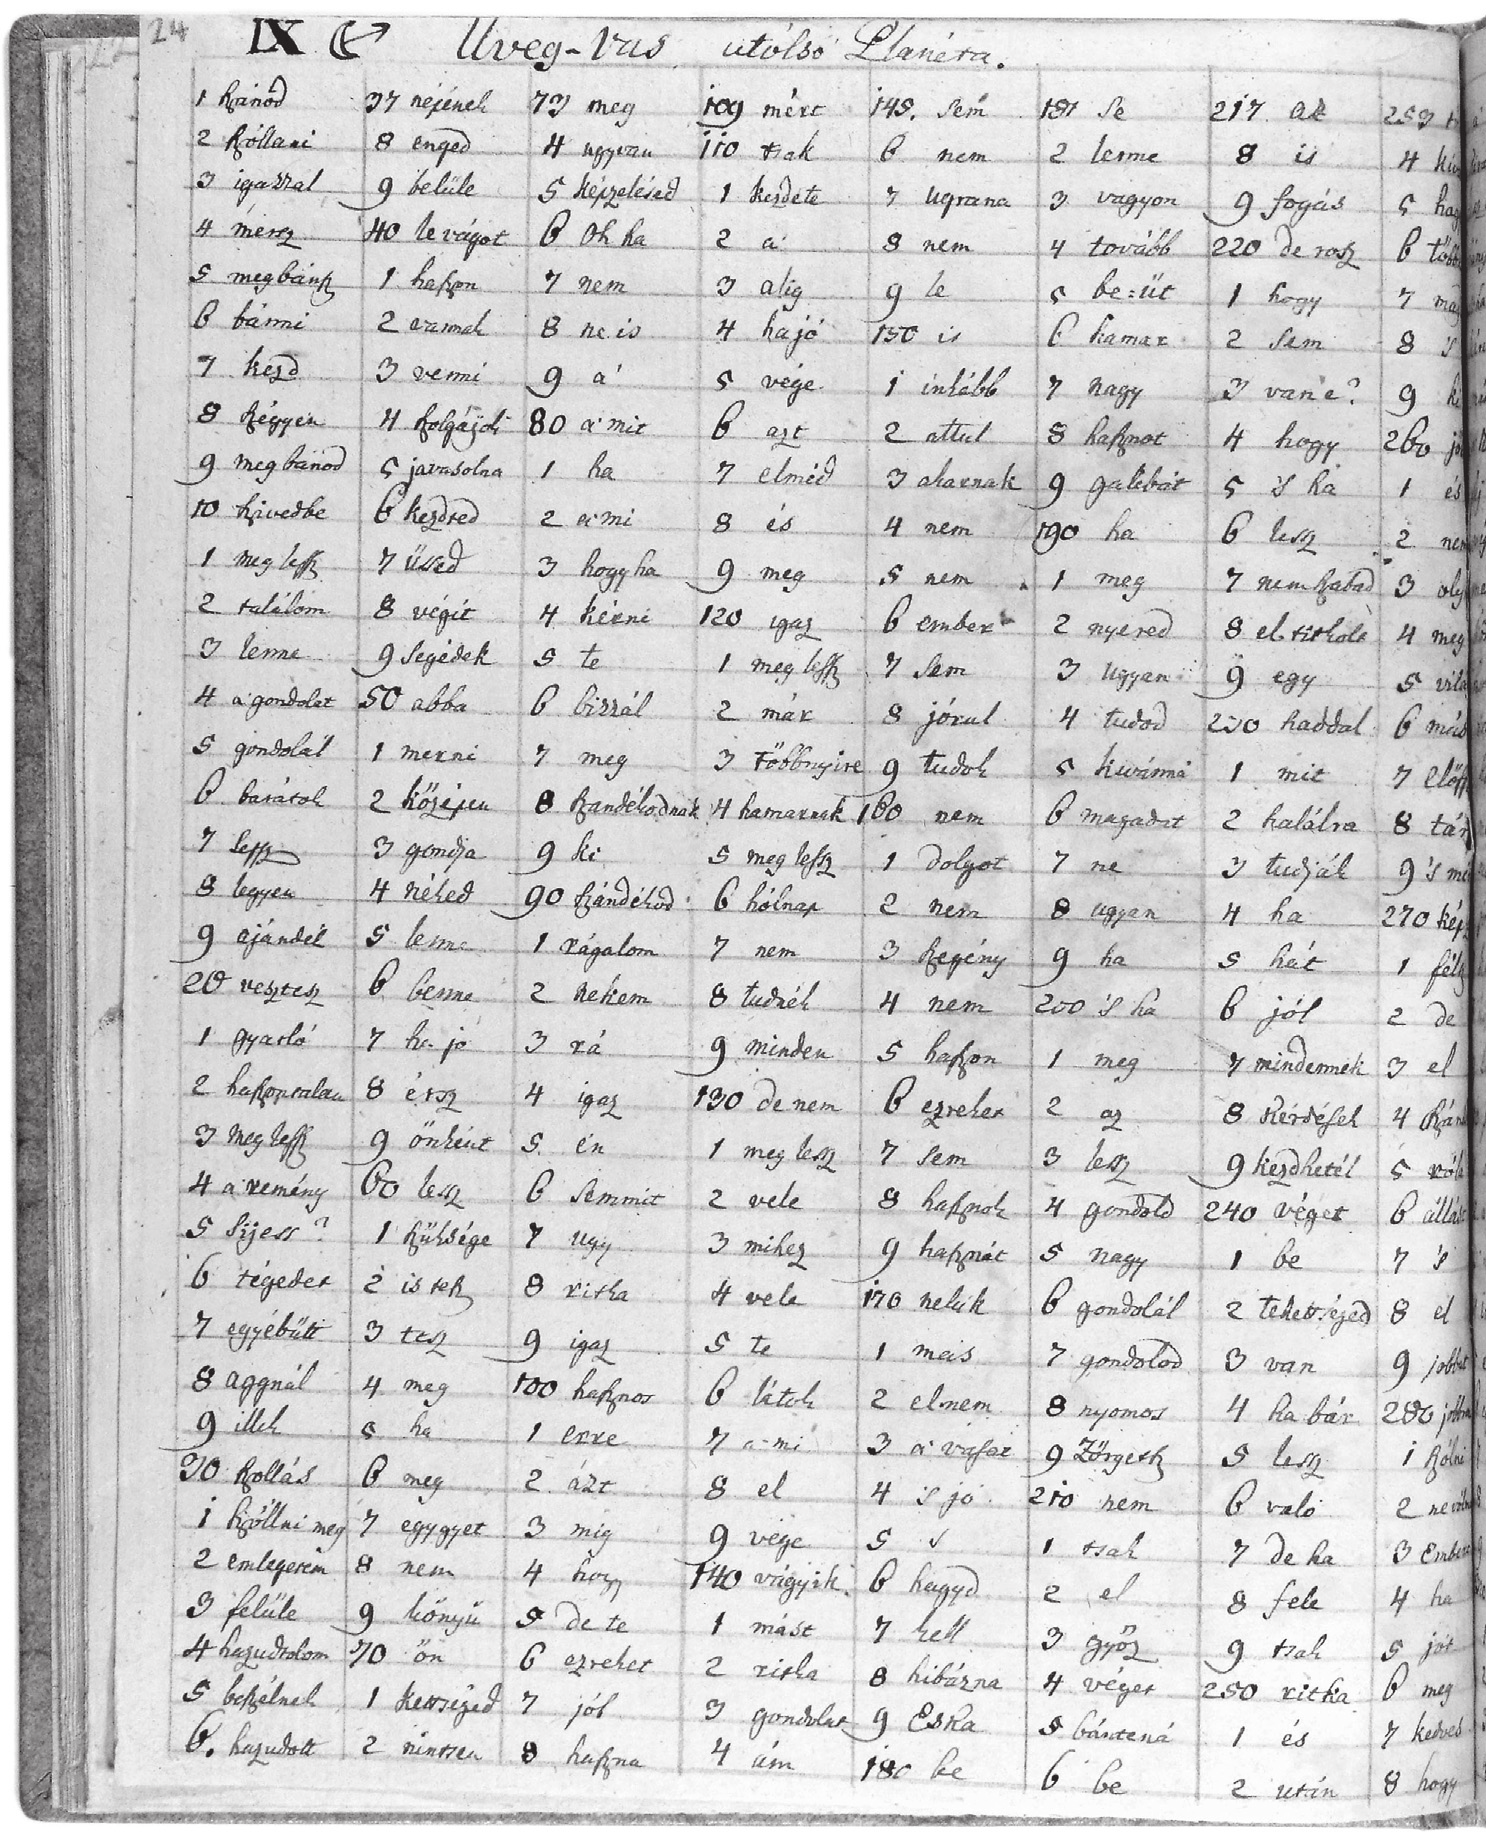 24
IX Üveg-Vas utólsó Planéta.
1 Szánod 37 nejének 73 meg 109 mért 145. sem 181 se 217 az 253
2 Szóllani 8 enged 4 ugyvan 110 tsak 6 nem 2 lenne 8 is 4
3 igazzal 9 belüle 5 képzelésed 1 kezdete 7 ugrana 3 vagyon 9 fogás 5
4 mersz 40 levágot 6 Oh ha 2 a' 8 nem 4 tovább 220 de rosz 6
5 megbánsz 1 haszon 7 nem 3 alig 9 le 5 be=üt 1 hogy 7
6 bánni 2 vannak 8 ne is 4 ha jó 150 is 6 hamar 2 sem 8 's
7 kezd 3 venni 9 a' 5 vége 1 inkább 7 nagy 3 van'e? 9
8 Szégyen 4 szolgájok 80 a'mit 6 azt 2 attul 8 hasznot 4 hogy 260
9 megbánod 5 javasolna 1 ha 7 elméd 3 akarnak 9 galibát 5 's ha 1 és
10 szivedbe 6 kezdted 2 a'mi 8 és 4 nem 190 ha 6 lesz 2
1 meg lessz 7 üssed 3 hogyha 9 meg 5 nem 1 meg 7 nem szabad 3
2 találom 8 végit 4 kérni 120 igaz 6 ember 2 nyered 8 el titkolt 4 meg
3 lenne 9 segédek 5 te 1 meg lessz 7 sem 3 ugyan 9 egy 5
4 a gondolat 50 abba 6 bizzál 2 már 8 jórul 4 tudod 230 haddal 6
5 gondolál 1 merni 7 meg 3 többnyire 9 tudok 5 kivánni 1 mit 7
6 barátok 2 közepen 8 szandékodnak 4 hamarnak 160 nem 6 magadat 2 halálra 8
7 lessz 3 gondja 9 ki 5 meg lessz 1 dolgot 7 ne 3 tudják 9
8 legyen 4 néked 90 szándékod 6 hólnap 2 nem 8 ugyan 4 ha 270
9 ajándék 5 lenne 1 rágalom 7 nem 3 szegény 9 ha 5 hát 1
20 vesztesz 6 benne 2 nekem 8 tudnék 4 nem 200 's ha 6 jól 2 de
1 gyarló 7 ha jó 3 rá 9 minden 5 haszon 1 meg 7 mindennek 3 el
2 haszontalan 8 érsz 4 igaz 130 de nem 6 ezreket 2 az 8 kérdések 4
3 meg lessz 9 önként 5 én 1 meg lesz 7 sem 3 lesz 9 kezdhetél 5
4 a'remény 60 lesz 6 semmit 2 vele 8 hasznok 4 gondold 240 véget 6
5 sijess? 1 szüksége 7 ugy 3 mihez 9 hasznát 5 nagy 1 be 7 's
6 tégedet 2 istek 8 ritka 4 vele 170 nekik 6 gondolál 2 tehettséged 8 el
7 egyébütt 3 tesz 9 igaz 5 te 1 mais 7 gondolod 3 van 9
8 aggnál 4 meg 100 hasznos 6 látok 2 elnem 8 nyomos 4 ha bár 280
9 illik 5 ha 1 erre 7 a'mi 3 a' vasat 9 zörgetsz 5 lesz 1
30 szollás 6 meg 2 ázt 8 el 4 's jó 210 nem 6 való 2
1 szóllni meg 7 egygyet 3 mig 9 vége 5 's 1 tsak 7 de ha 3
2 emlegetem 8 nem 4 hogy 140 vágyik 6 hagyd 2 el 8 fele 4 ha
3 felüle 9 könyü 5 de te 1 mást 7 kell 3 győz 9 tsak 5
4 hazudtolom 70 ön 6 ezreket 2 ritka 8 hibázna 4 véget 250 ritka 6 meg
5 beszélnek 1 kettséged 7 jól 3 gondolat 9 Eska 5 bántená 1 és 7 kedves
6. hazudott 2 nintsen 8 haszna 4 ám 180 be 6 be 2 után 8 hogy